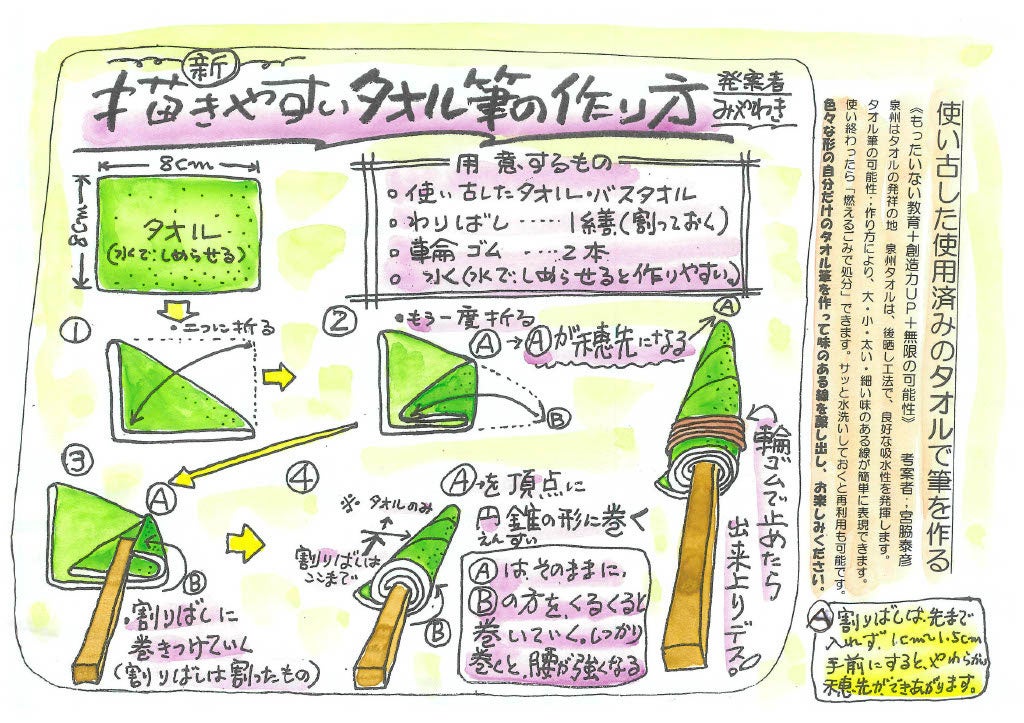 新
描きやすいタオル筆の作り方
発案者
みやわき
8cm
8cm
タオル
(水でしめらせる)
用意するもの
○使い古したタオル・バスタオル
○わりばし……1繕(割っておく)
○輪ゴム……2本
○水(水でしめらせると作りやすい)
①
・二つに折る
②
・もう一度折る
Ⓐ→Ⓐが穂先になる
Ⓐ
Ⓑ
③
Ⓐ
Ⓑ
・割りばしに
巻きつけていく
(割りばしは割ったもの)
④
※タオルのみ
割りばしは
ここまで
Ⓑ
Ⓐを頂点に
円錐の形に巻く
えんすい
Ⓐは、そのままに、
Ⓑの方を、くるくると
巻いていく。しっかり
巻くと、腰が強くなる
輪ゴムで止めたら
出来上りデス。
使い古した使用済みのタオルで筆を作る
《もったいない教育+創造力UP+無限の可能性》 考案者:宮脇泰彦
泉州はタオルの発祥の地 泉州タオルは、後晒し工法で、良好な吸水性を発揮します。
タオル筆の可能性:作り方により、大・小・太い・細い味のある線が簡単に表現できます。
使い終わったら「燃えるごみで処分」できます。サッと水洗いしておくと再利用も可能です。
色々な形の自分だけのタオル筆を作って味のある線を醸し出し、お楽しみください。
Ⓐ割りばしは、先まで
入れず、1cm〜1.5cm
手前にすると、やわらかい
穂先ができあがります。